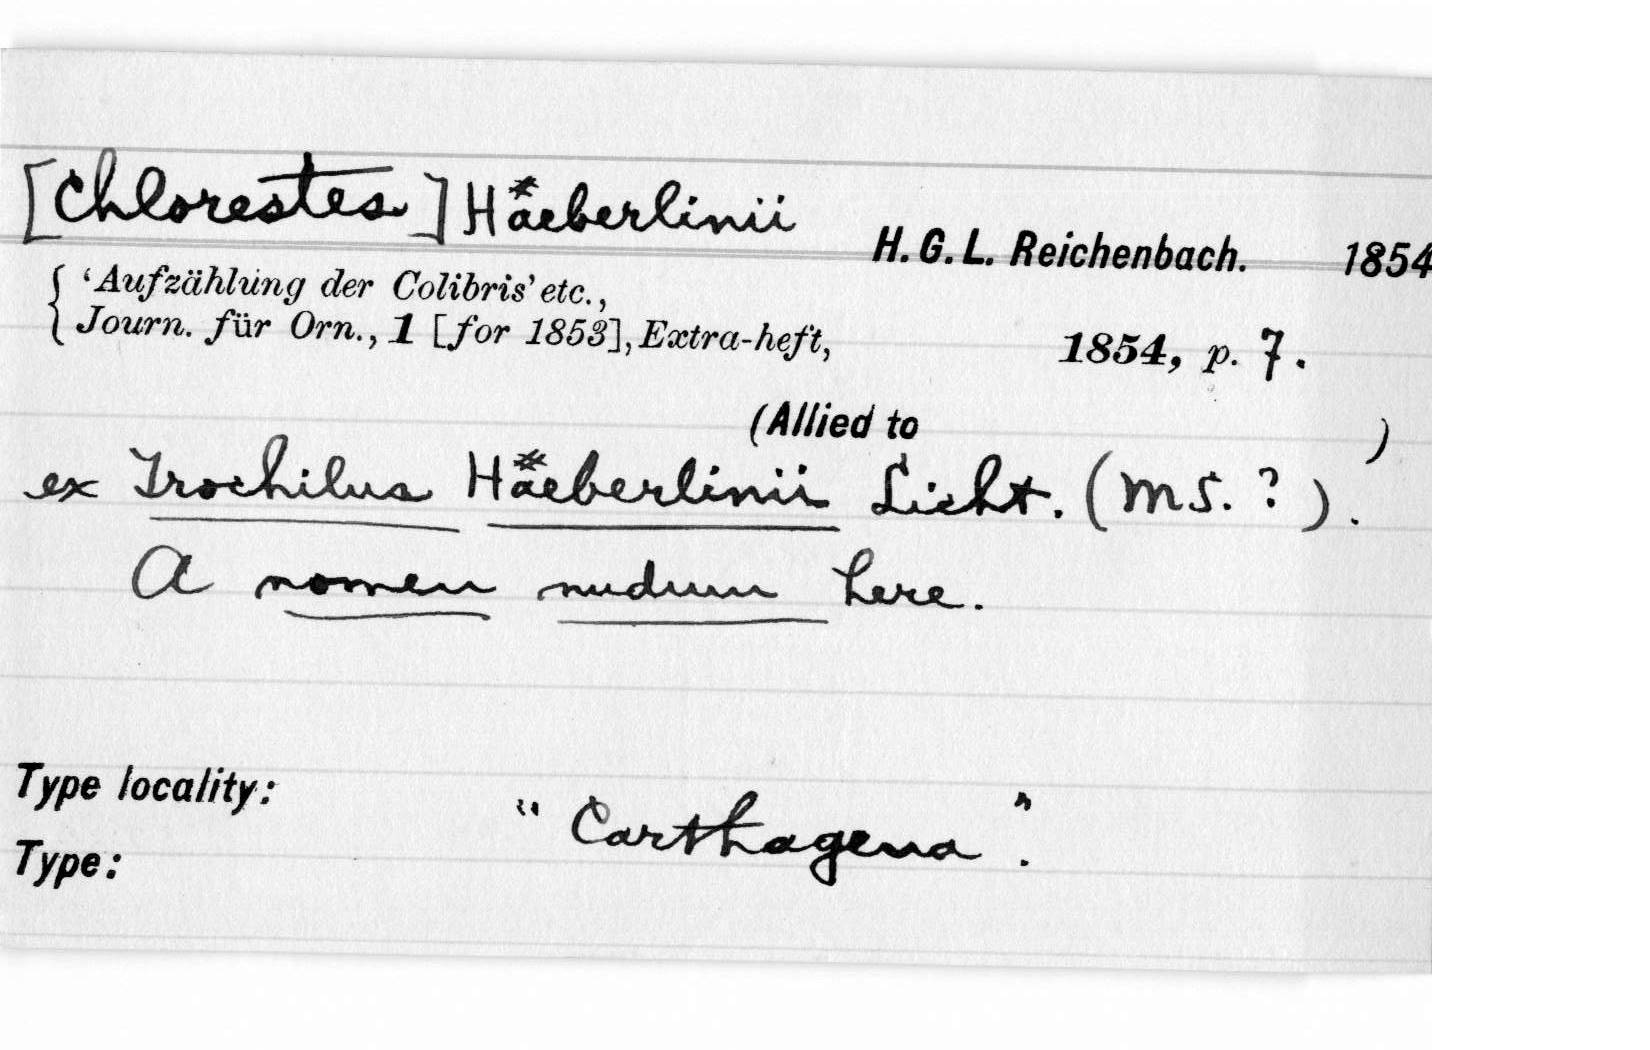 [Chlorestes] Haeberlinii
H. G. L. Reichenbach. 1854
{ ‘Aufzählung der Colibris’ etc.,
Journ. für Orn., 1 [for 1853], Extra-heft, 1854, p. 7.
(Allied to )
ex Trochilus Haeberlinii Licht. (MS. ?).
A nomen nudum here.
Type locality:
“Carthagena”.
Type: